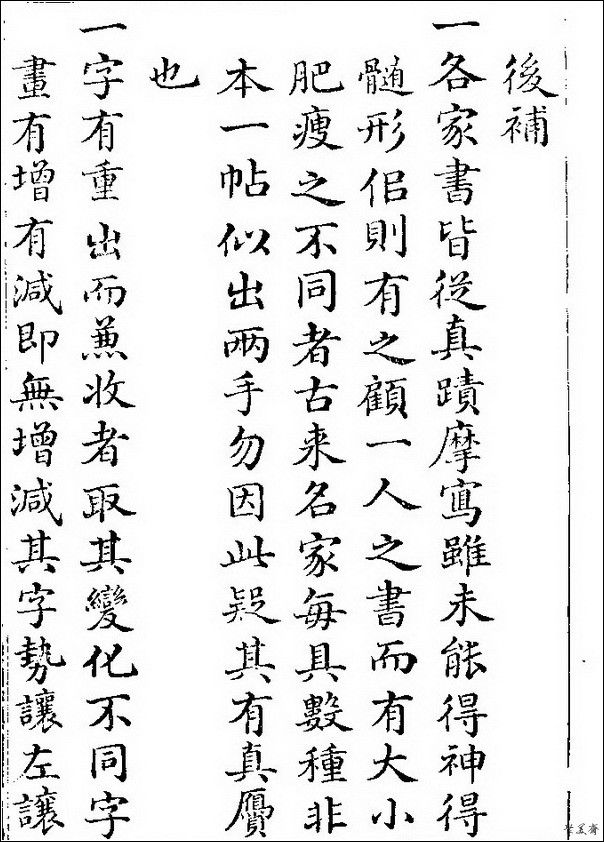 後補
一各家書皆從真蹟摩寫雖未能得神得
髄形侣則有之顧一人之書而有大小
肥瘦之不同者古来名家每具數種非
本一帖似出兩手勿因此疑其有真贋
也
一字有重出而兼收者取其變化不同字
畫有增有減即無增減其字勢讓左讓